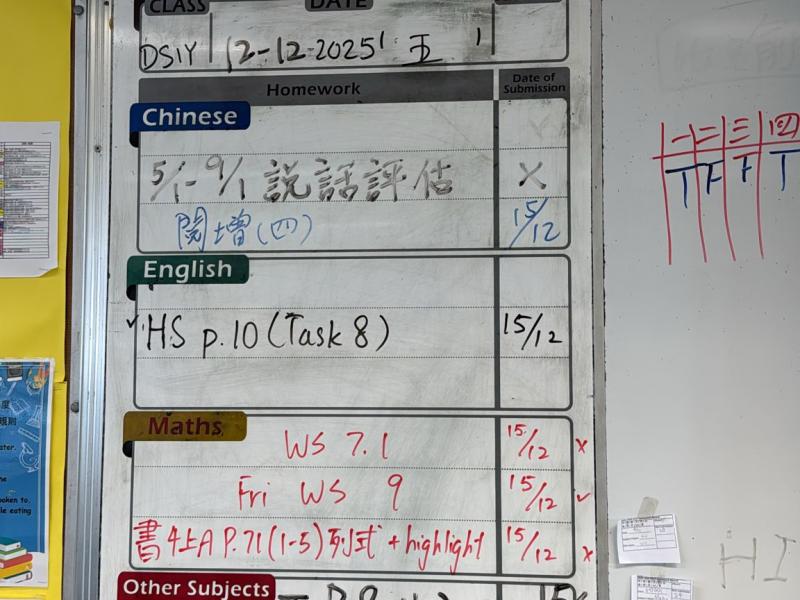 CLASS DATE
DS1Y 12-12-2025 五
Homework Date of Submission
Chinese
5/1-9/1 説話評估 X
閱增(四) 15/12
English
✓ HS p.10 (Task 8) 15/12
Maths
WS 7.1 15/12 x
Fri WS 9 15/12 ✓
書4上A P.71 (1-5) 列式 + highlight 15/12 x
Other Subjects
一 二 三 四
HI